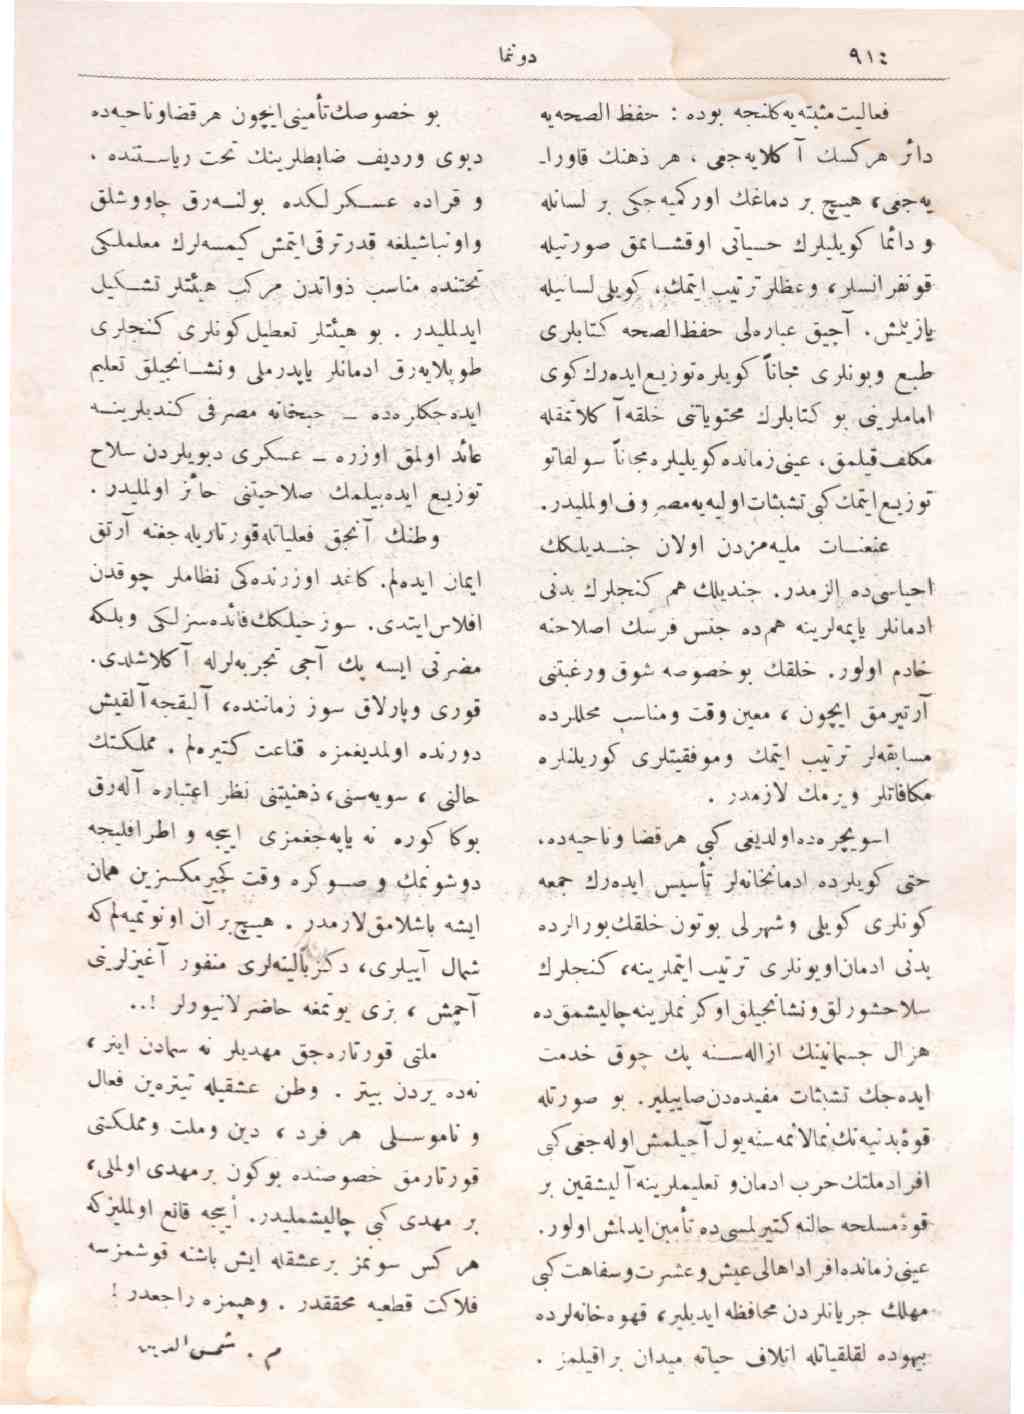 ٩١٤
دونمـا
فعالیت مثبته‌یه کلنجه بوده : حفظ الصحه‌یه
دائر هرکسك آ کلایه‌جغی ، هر ذهنك قاورا‌ـ
یه‌جغی، هیچ بر دماغك اورکمیه‌جکی بر لسانله
و دائما کویلیلرك حسیاتی اوقشـامق صورتیله
قونفرانسلر، وعظلر ترتیب ایتمك، کویلی لسانیله
یازیلمش. آچیق عباره‌لی حفظ‌الصحه کتابلری
طبع وبونلری مجاناً کویلره توزیع ایده‌رك کوی
اماملرینی بو کتابلرك محتویاتنی خلقه آ کلاتمقله
مکلف قیلمق، عینی زمانده کویلیلره مجاناً سولفاتو
توزیع ایتمك کبی تشبثات اولیه‌یه مصروف اولملیدر.
عنعنـات ملیه‌مزدن اولان جنـدیلکك
احیاسی ده الزمدر. جندیلك هم کنجلرك بدنی
ادمانلر یاپمه‌لرینه هم‌ده جنس فرسك اصلاحنه
خادم اولور. خلقك بو خصوصه شوق و رغبتنی
آرتیرمق ایچون ، معین وقت ومناسب محللرده
مسابقه‌لر ترتیب ایتمك وموفقیتلری کوریلنلره
مکافاتلر ویرمك لازمدر .
اسویچره‌ده اولدیغی کبی هر قضا وناحیه‌ده،
حتی کویلرده ادمانخانه‌لر تأسیس ایده‌رك جمعه
کونلری کویلی وشهرلی بوتون خلقك بورالرده
بدنی ادمان اویونلری ترتیب ایتملرینه، کنجلرك
سلاحشورلق ونشانجیلق اوکرنملرینه چالیشمق ده
هزال جسمانینك ازاله‌سـنه پك چوق خدمت
ایده‌جك تشبثات مفیده‌دن صاییلیر. بو صورتله
قوۀ بدنیه‌نك نمالانمه‌سنه یول آچیلمش اوله‌جغی کبی
افراد ملتك حرب ادمان و تعلیملرینه آلیشقین بر
قوۀ مسلحه حالنه کتیرلمسی ده تأمین ایدلمش اولور.
عینی زمانده افراد اهالی عیش وعشرت وسفاهت کبی
مهلك جریانلردن محافظه ایدیلیر، قهوه‌خانه‌لرده
بیهوده لقلقیاتله اتلاف حیاته میدان براقیلمز .
بو خصوصك تأمینی ایچون هر قضا وناحیه‌ده
دپوی وردیف ضابطلرینك تحت ریاسـتنده ،
و قراده عسـکرلکده بولنـه‌رق چاووشلق
واونباشیلغه قدر ترقی ایتمش کیمسه‌لرك معلملکی
تحتنده مناسب ذواتدن مرکب هیئتلر تشـکیل
ایدلملیدر . بو هیئتلر تعطیل کونلری کنجلری
طوپلایه‌رق ادمانلر یاپدرملی ونشـانجیلق تعلیم
ایده‌جکلرده — جبخانه مصرفی کندیلرینـه
عائد اولمق اوزره — عسکری دپویلردن سلاح
توزیع ایده‌بیلمك صلاحیتنی حائز اولملیدر .
وطنك آنجق فعلیاتله قورتاریله‌جغنه آرتق
ایمان ایده‌لم. کاغد اوزرنده‌کی نظاملر چوقدن
افلاس ایتدی. سوزجیلکك فائده‌سزلکی وبلکه
مضرتی ایسه پك آجی تجربه‌لرله آ کلاشلدی.
قوری وپارلاق سوز زماننده، آلیقجه آلقیش
دورنده اولمدیغمزه قناعت کتیره‌لم . مملکتك
حالنی ، سویه‌سنی، ذهنیتنی نظر اعتباره آله‌رق
بوکا کوره نه یاپه‌جغمزی اییجه و اطرافلیجه
دوشونمك و صـوکره وقت کچیرمکسزین همان
ایشه باشلامق لازمدر . هیچ بر آن اونوتمیه‌لم که
شمال آییلری، دکز بالینه‌لری منفور آغیزلرینی
آچمش ، بزی یوتمغه حاضرلانیورلر !..
ملتی قورتاره‌جق مهدیلر نه سمادن اینر ،
نه‌ده یردن بیتر . وطن عشقیله تیتره‌ین فعال
و ناموسـلی هر فرد ، دین وملت ومملکتی
قورتارمق خصوصنده بوکون بر مهدی اولملی،
بر مهدی کبی چالیشملیدر. اییجه قانع اولملیز که
هر کس سونمز بر عشقله ایش باشنه قوشمزسه
فلاکت قطعیه محققدر . وهپمزه راجعدر !
م . شمس الدین